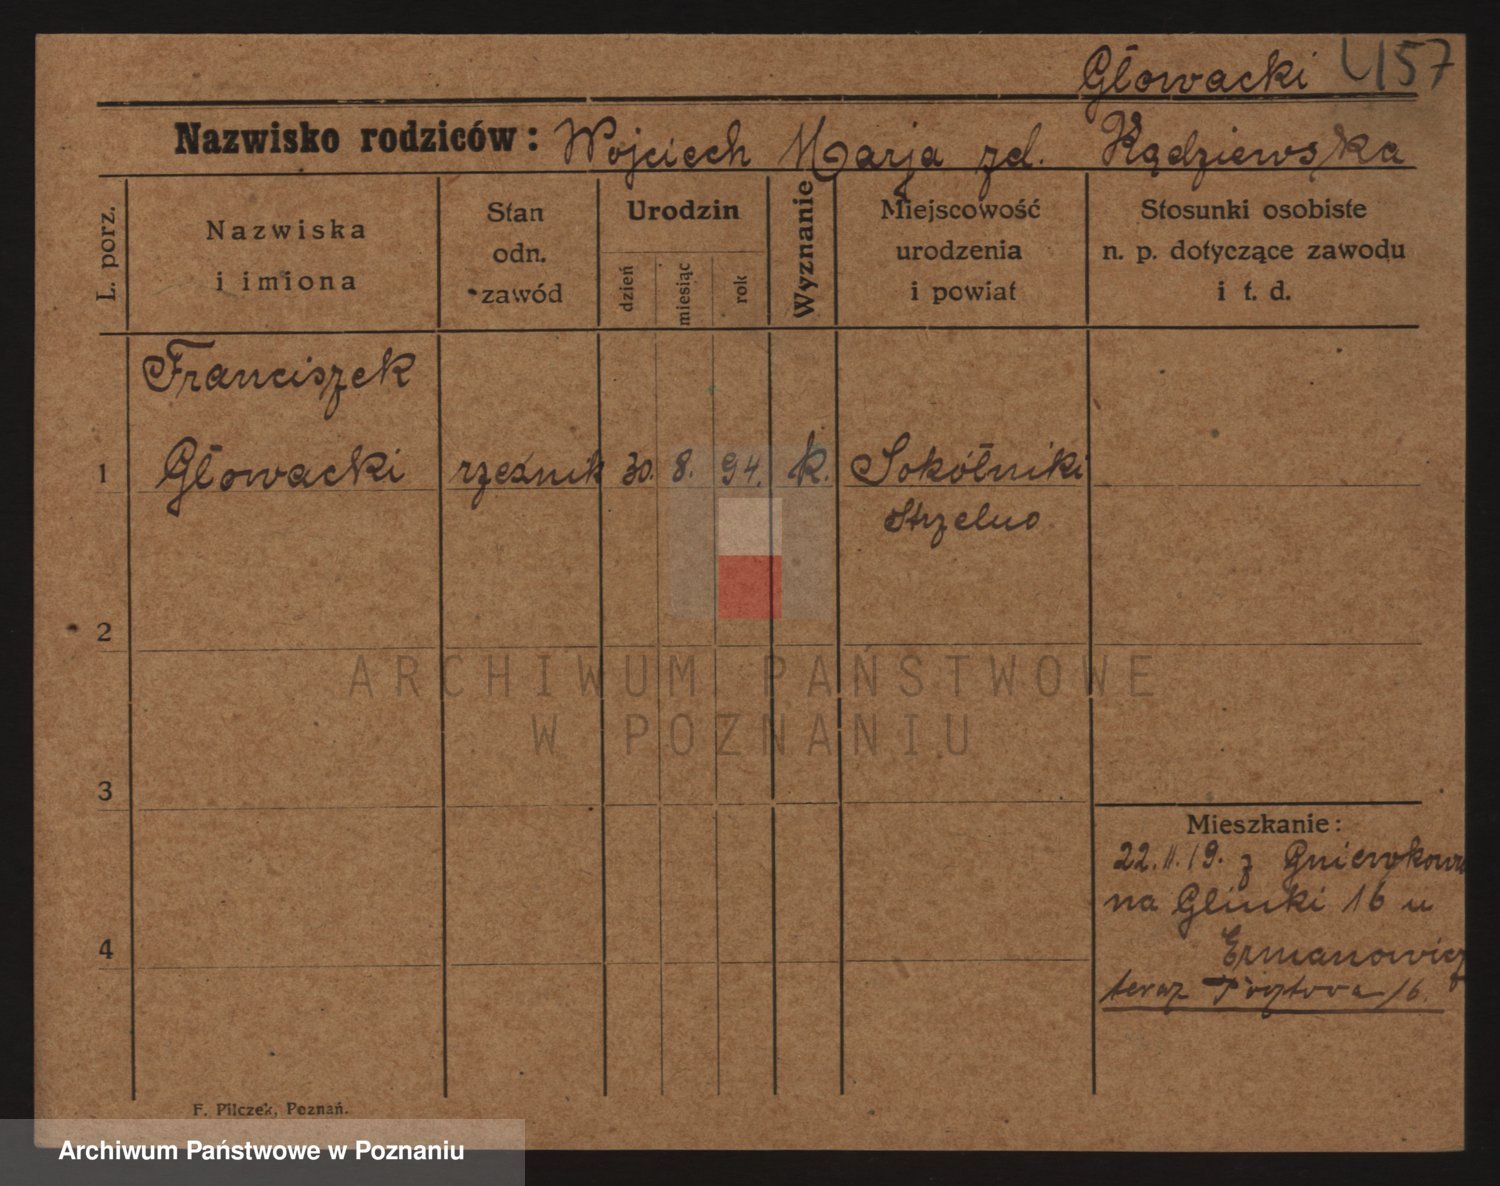 Głowacki 4157
Nazwisko rodziców: Wojciech Marja zd. Kądziewska
L. porz.
Nazwiska
i imiona
Stan
odn.
zawód
Urodzin
dzień
miesiąc
rok
Wyznanie
Miejscowość
urodzenia
i powiat
Stosunki osobiste
n. p. dotyczące zawodu
i t. d.
Franciszek
1 Głowacki rzeźnik 30. 8. 94. k. Sokółniki
Strzelno
2
ARCHIWUM PAŃSTWOWE
W POZNANIU
3
Mieszkanie:
22. 11. 19. z Gniewkowa
na Glinki 16 u
4
Ermanowicz
teraz 16.
F. Pilczek, Poznań.
Archiwum Państwowe w Poznaniu